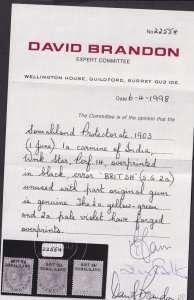 No 22554
DAVID BRANDON
EXPERT COMMITTEE
WELLINGTON HOUSE, GUILDFORD, SURREY GU3 IDE.
Date 6-4-1998.
The Committee is of the opinion that the
Somaliland Protectorate 1903
(1 June) 1a carmine of India,
Wmk Star, Perf. 14, overprinted
in black, error "BRIT SH" (S.G. 2a)
unused with part original gum
is genuine. The 2a yellow-green
and 2a pale violet have forged
overprints.
22554
BRIT SH
SOMALILAND
BRIT SH
SOMALILAND
BRIT SH
SOMALILAND